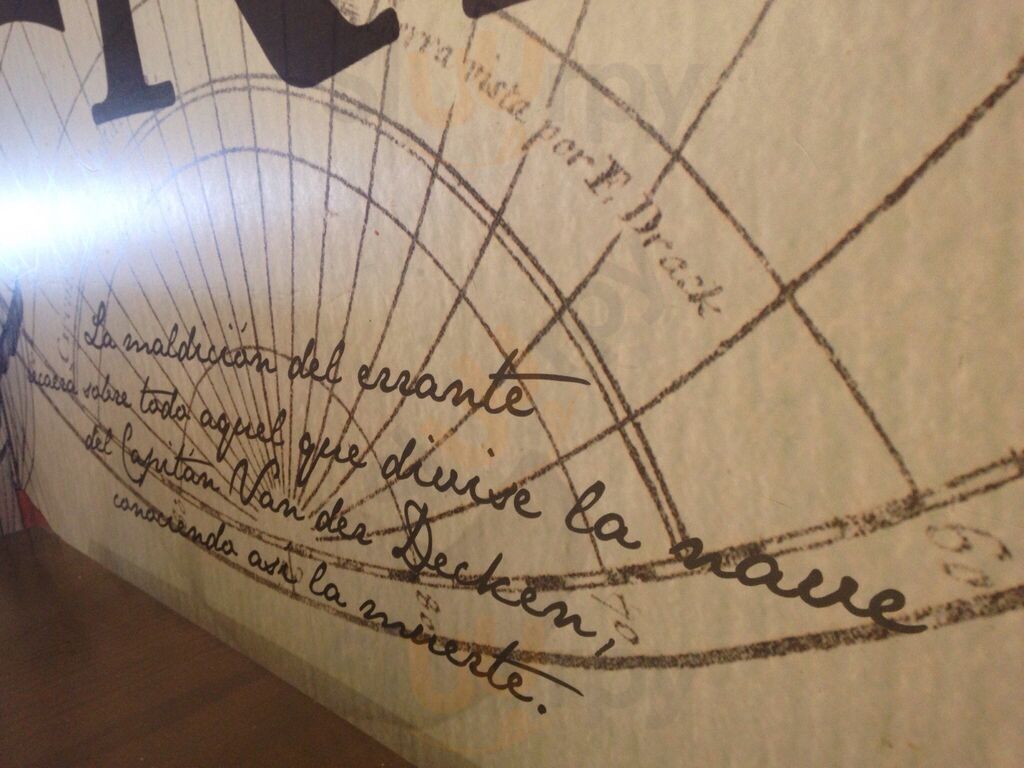 vista por F. Drack
La maldición del errante
sobre todo aquel que divise la nave
del Capitán Van der Decken,
conociendo así la muerte.
60
70